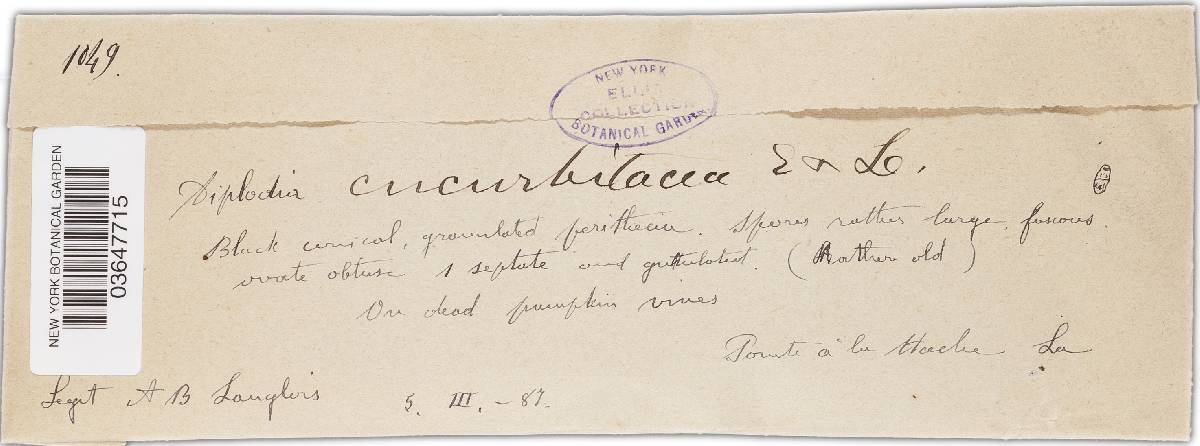 1049.
NEW YORK
ELLIS
COLLECTION
BOTANICAL GARDEN
NEW YORK BOTANICAL GARDEN
03647715
Diplodia cucurbitacea E & L.
Black conical, granulated perithecia. Spores rather large, fuscous.
ovate obtuse 1 septate and guttulated. (Rather old)
On dead pumpkin vines
Pointe à la Hache La
Legit A B Langlois 5. III. - 87.